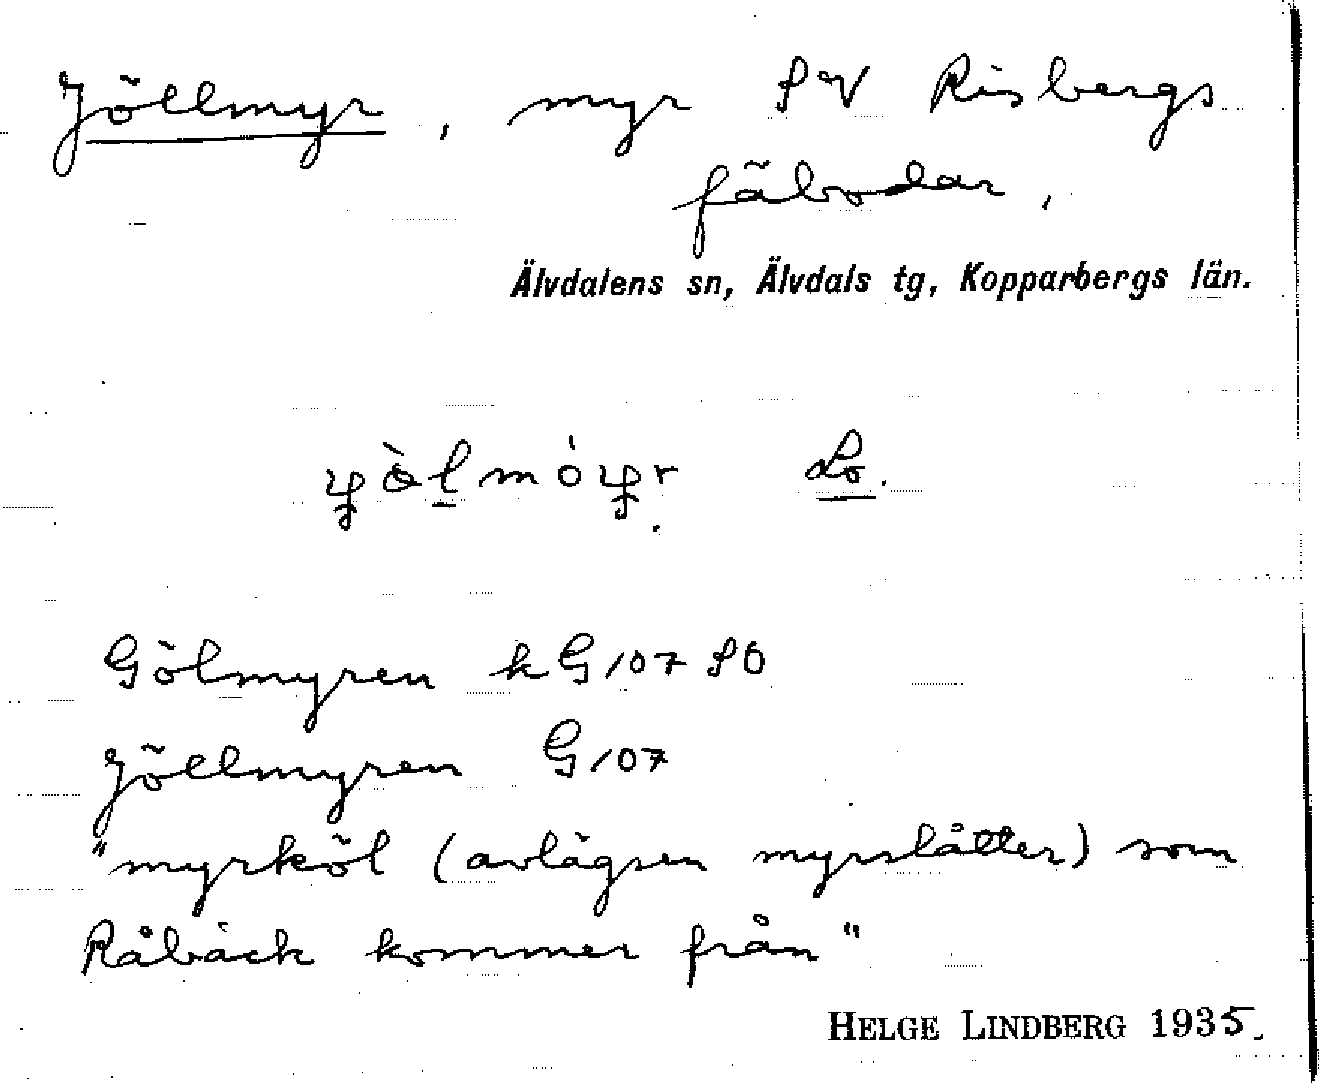 Jöllmyr, myr SV Risbergs
fäbodar,
Älvdalens sn, Älvdals tg, Kopparbergs län.
Lo.
Gölmyren k G107 SO
Jöllmyren G107
"myrköl (avlägsen myrslåtter) som
Råbäck kommer från"
HELGE LINDBERG 1935.